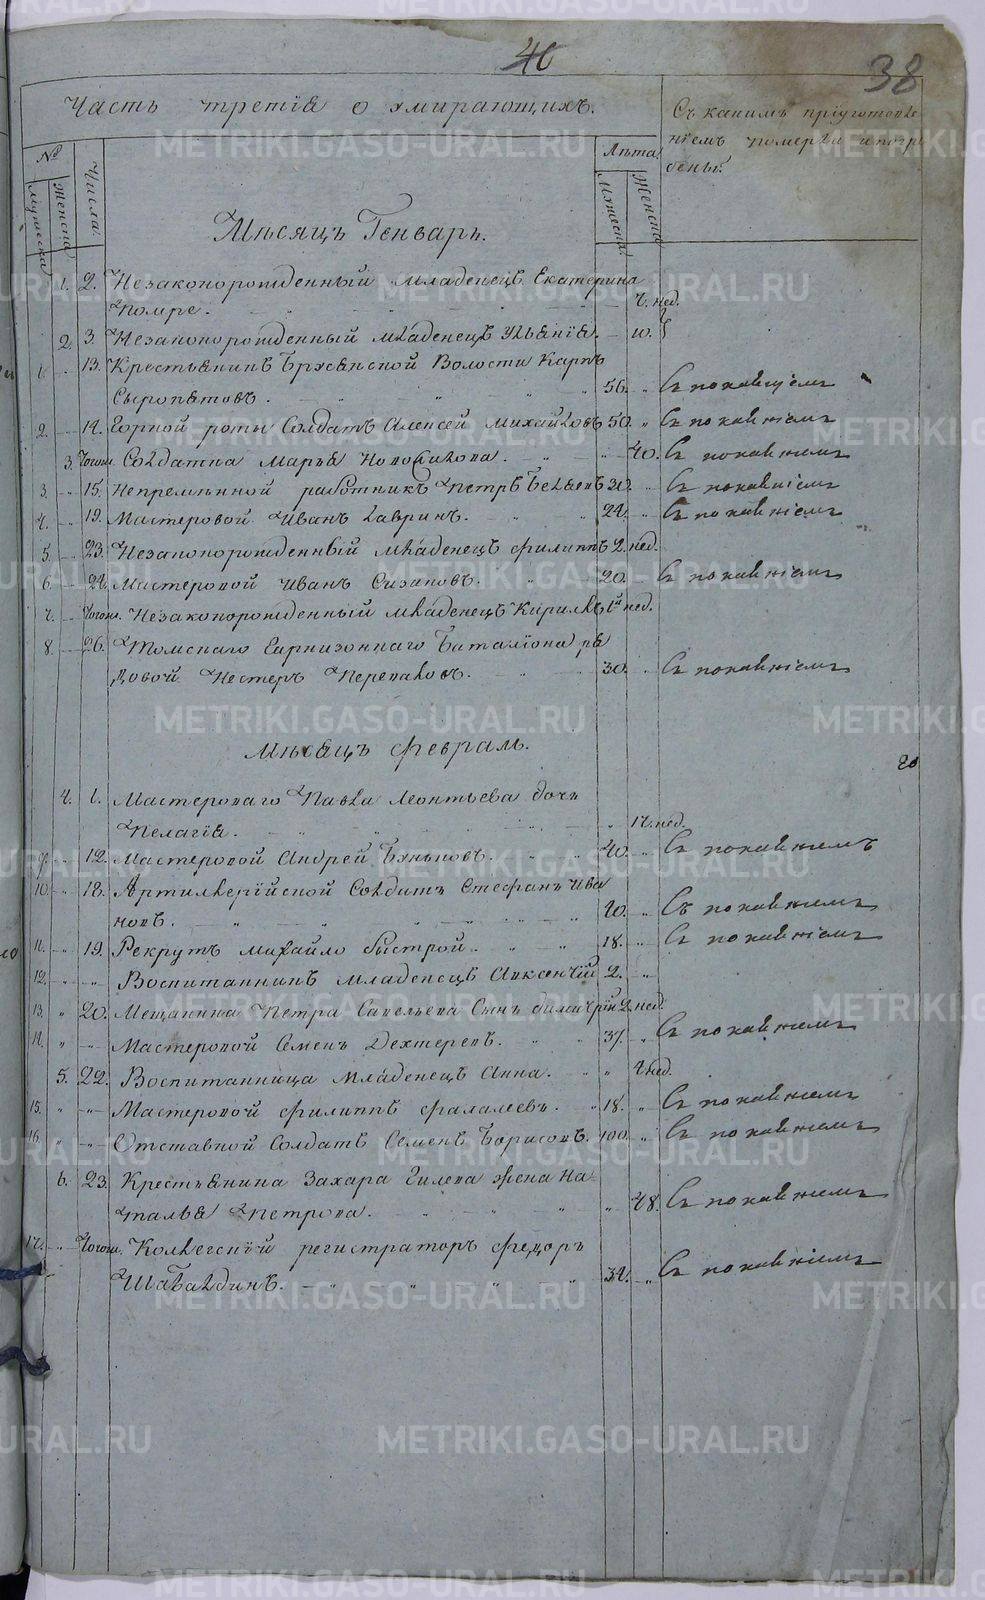 40
38
Часть третія о умирающихъ.
Съ какимъ пріуготовле
ніемъ померли и погр
бены.
№
Мужеска
Женска
Числа
Лѣта
Мужеска
Женска
Мѣсяцъ Генварь.
1. 2. Незаконорожденный младенецъ Екатерина
Помре. 4. нед.
2. 3. Незаконорожденный младенецъ Уліанія. — ю.
1. 13. Крестьянинъ Брусянской Волости Карпъ
Сыропятовъ. 56. Съ покаяніемъ
2. 14. Горной роты Солдатъ Алексей Михайловъ 50. Съ покаяніемъ
3. Тогож. Солдатка Марья Новоселова. 40. Съ покаяніемъ
3. 15. Непремѣнной работникъ Петръ Беляевъ 30. Съ покаяніемъ
4. 19. Мастеровой Иванъ Лавринъ. 24. Съ покаяніемъ
5. 23. Незаконорожденный младенецъ Филиппъ 2. нед.
6. 24. Мастеровой Иванъ Сизаковъ. 20. Съ покаяніемъ
7. Тогож. Незаконорожденный младенецъ Кирилъ 1й нед.
8. 26. Томскаго Гарнизоннаго Баталіона ря
довой Нестеръ Переваловъ. 30. Съ покаяніемъ
Мѣсяцъ Февраль.
4. 1. Мастероваго Павла Леонтьева дочь
Пелагія. нед.
9. 12. Мастеровой Андрей Буньковъ. 40. Съ покаяніемъ
10. 18. Артиллерійской Солдатъ Стефанъ Ива
новъ. Съ покаяніемъ
11. 19. Рекрутъ Михайло Быстрой. 18. Съ покаяніемъ
12. Воспитанникъ младенецъ Авксентій 2.
13. 20. Мещанина Петра Савельева Сынъ Димитрій 2. нед.
14. Мастеровой Семенъ Дехтеревъ. 37. Съ покаяніемъ
5. 22. Воспитанница младенецъ Анна. нед.
15. Мастеровой Филиппъ Фалалеевъ. 18. Съ покаяніемъ
16. Отставной Солдатъ Семенъ Борисовъ. 100. Съ покаяніемъ
6. 23. Крестьянина Захара Гилева жена На-
талья Петрова. 48. Съ покаяніемъ
17. Тогож. Коллегскій регистраторъ Федоръ
Шабалдинъ. 34. Съ покаяніемъ
METRIKI.GASO-URAL.RU